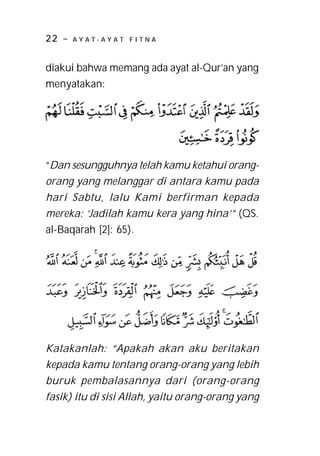 22 ~ AYAT-AYAT FITNA
diakui bahwa memang ada ayat al-Qur'an yang
menyatakan:
وَلَقَدْ عَلِمْتُمُ ٱلَّذِينَ ٱعْتَدَوْا۟ مِنكُمْ فِى ٱلسَّبْتِ فَقُلْنَا لَهُمْ
كُونُوا۟ قِرَدَةً خَـٰسِـِٔينَ
"Dan sesungguhnya telah kamu ketahui orang-
orang yang melanggar di antara kamu pada
hari Sabtu, lalu Kami berfirman kepada
mereka: 'Jadilah kamu kera yang hina'" (QS.
al-Baqarah [2]: 65).
قُلْ هَلْ أُنَبِّئُكُم بِشَرٍّ مِّن ذَٰلِكَ مَثُوبَةً عِندَ ٱللَّهِ ۚ مَن لَّعَنَهُ ٱللَّهُ
وَغَضِبَ عَلَيْهِ وَجَعَلَ مِنْهُمُ ٱلْقِرَدَةَ وَٱلْخَنَازِيرَ وَعَبَدَ
ٱلطَّـٰغُوتَ ۚ أُو۟لَـٰٓئِكَ شَرٌّ مَّكَانًا وَأَضَلُّ عَن سَوَآءِ ٱلسَّبِيلِ
Katakanlah: "Apakah akan aku beritakan
kepada kamu tentang orang-orang yang lebih
buruk pembalasannya dari (orang-orang
fasik) itu di sisi Allah, yaitu orang-orang yang